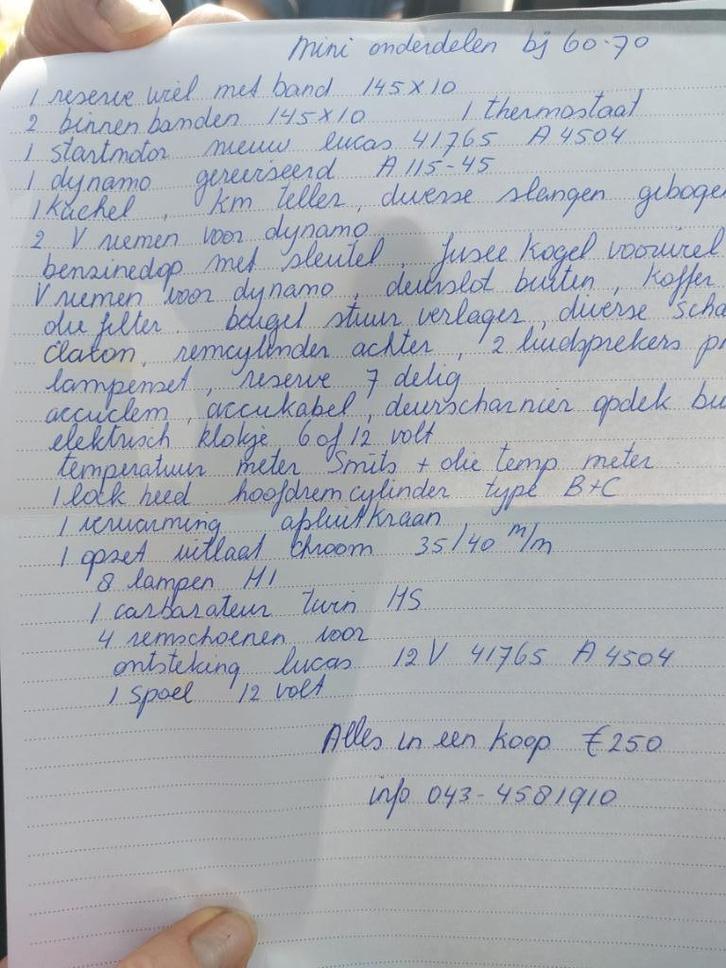 mini onderdelen bj 60-70
1 reserve wiel met band 145x10
2 binnenbanden 145x10 1 thermostaat
1 startmotor nieuw lucas 41765 A4504
1 dynamo gereviseerd A115-45
1 kachel, km teller, diverse slangen geboge
2 V riemen voor dynamo
benzinedop met sleutel, fusee kogel voorwiel
V riemen voor dynamo, deurslot buiten, koffer
olie filter. beugel stuur verlager, diverse scha
claxon, remcylinder achter, 2 luidsprekers
lampenset, reserve 7 delig
accuclem, accukabel, deurscharnier opdek bu
elektrisch klokje 6 of 12 volt
temperatuur meter Smits + olie temp meter
1 lock heed hoofdremcylinder type B+C
1 verwarming afsluitkraan
1 opzet uitlaat chroom 35/40 m/m
8 lampen H1
1 carbarateur twin HS
4 remschoenen voor
ontsteking lucas 12V 41765 A4504
1 spoel 12 volt
Alles in een koop €250
info 043-4581910